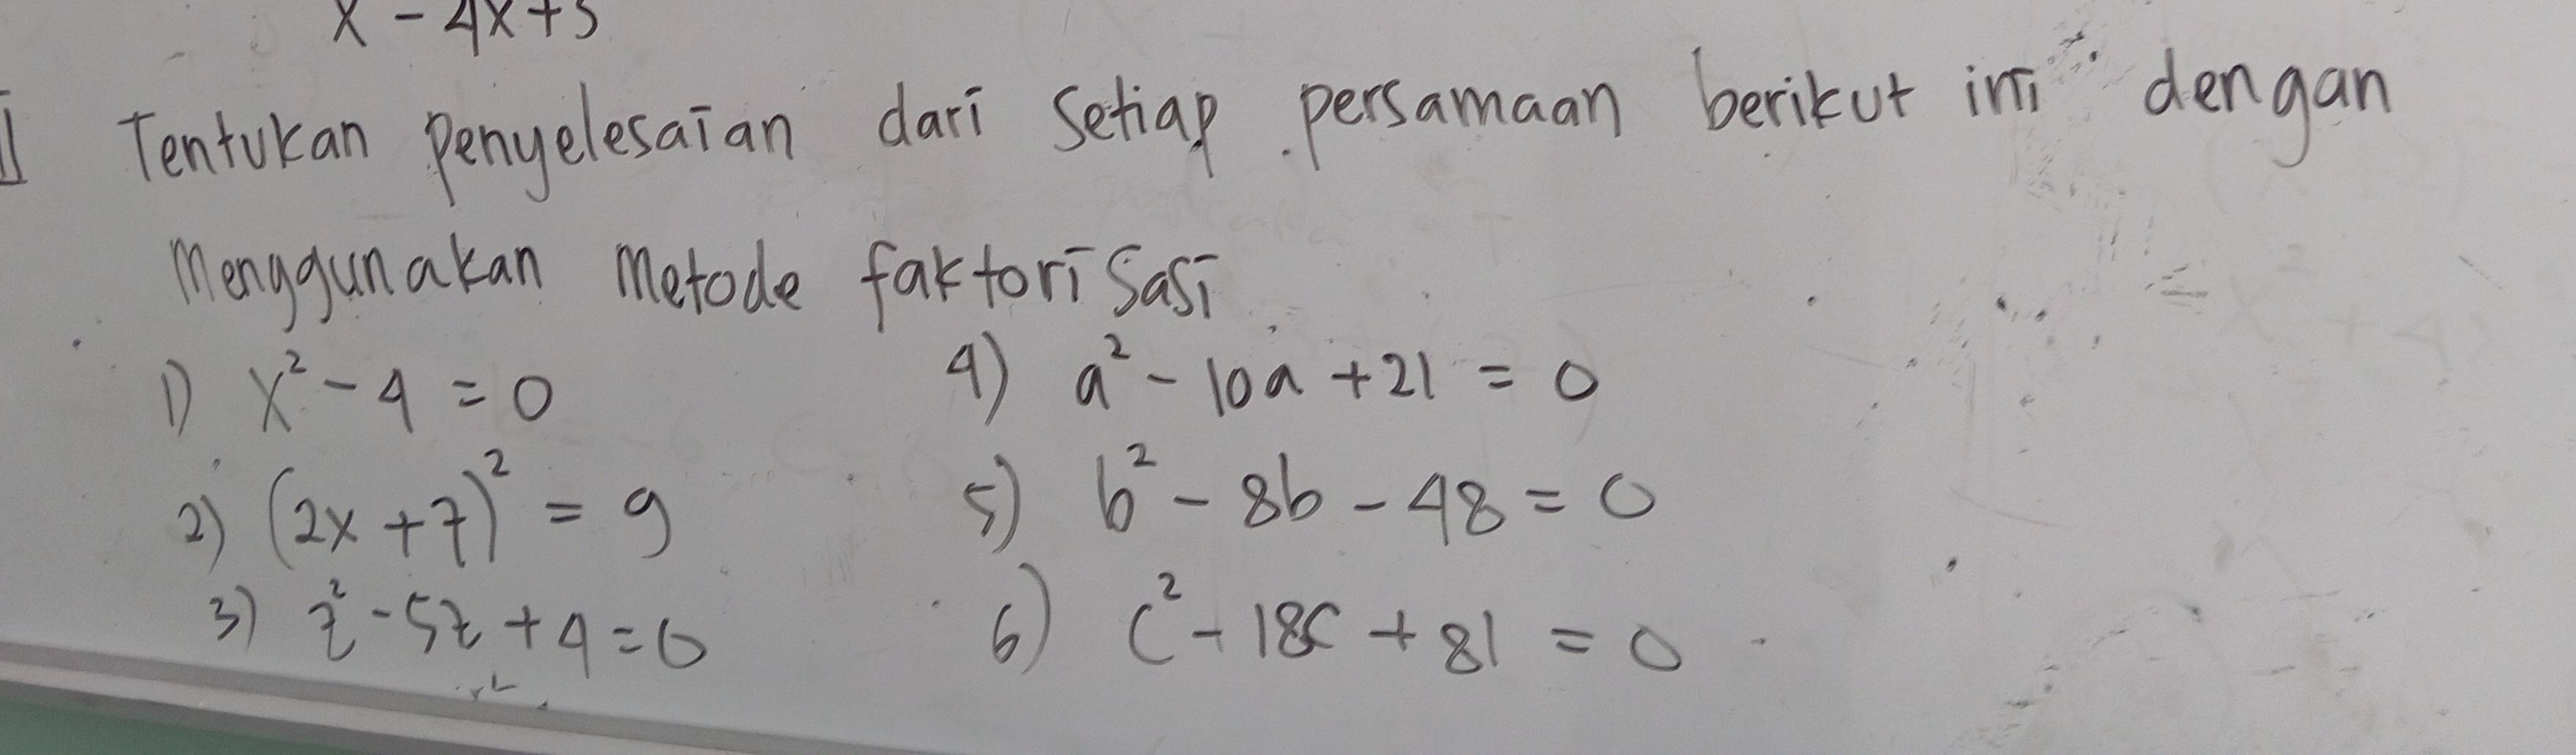 x - 4x+5
Tentukan penyelesaian dari setiap persamaan berikut ini dengan
Menggunakan Metode faktorisasi
1) x² - 4 = 0
4) a² - 10a + 21 = 0
2) (2x + 7)² = 9
5) b² - 8b - 48 = 0
3) z² - 5z + 4 = 0
6) c² - 18c + 81 = 0